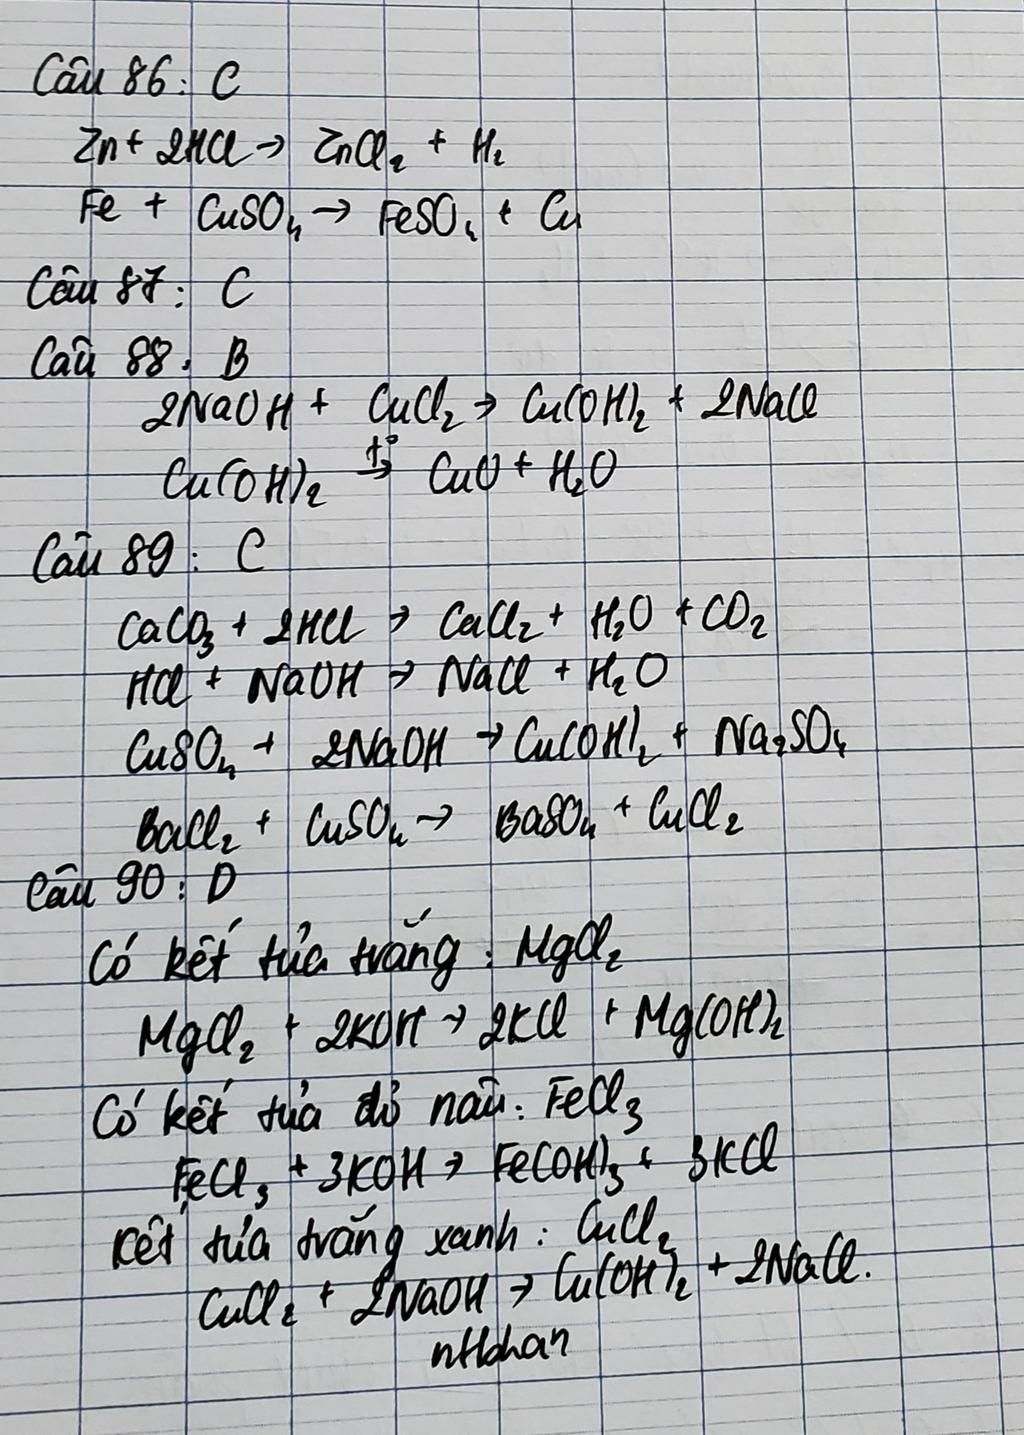 Câu 86: C
Zn + 2HCl → ZnCl₂ + H₂
Fe + CuSO₄ → FeSO₄ + Cu
Câu 87: C
Câu 88: B
2NaOH + CuCl₂ → Cu(OH)₂ + 2NaCl
Cu(OH)₂ t°→ CuO + H₂O
Câu 89: C
CaCO₃ + 2HCl → CaCl₂ + H₂O + CO₂
HCl + NaOH → NaCl + H₂O
CuSO₄ + 2NaOH → Cu(OH)₂ + Na₂SO₄
BaCl₂ + CuSO₄ → BaSO₄ + CuCl₂
Câu 90: D
Có kết tủa trắng: MgCl₂
MgCl₂ + 2KOH → 2KCl + Mg(OH)₂
Có kết tủa đỏ nâu: FeCl₃
FeCl₃ + 3KOH → Fe(OH)₃ + 3KCl
Kết tủa trắng xanh: CuCl₂
CuCl₂ + 2NaOH → Cu(OH)₂ + 2NaCl.